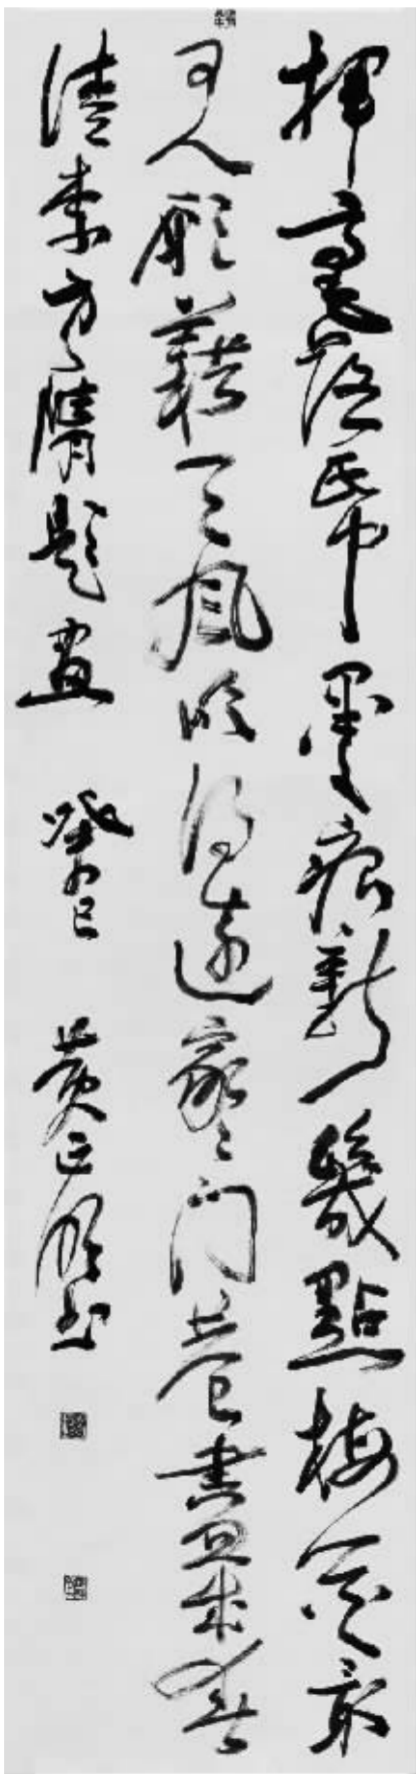 揮毫落帋墨痕新幾點梅花最
可人願藉天風吹得遠家々門巷盡成春
清李方膺題畫 癸巳 黄正书